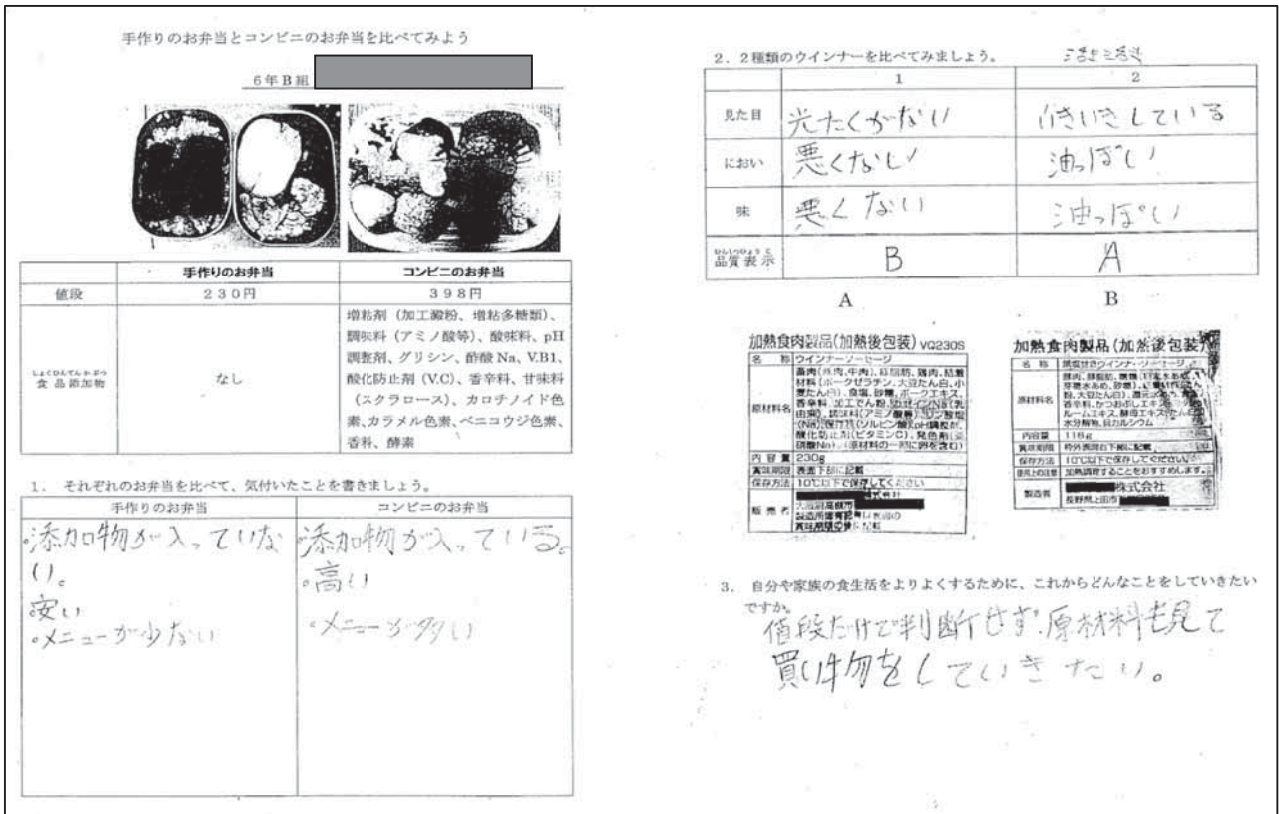 手作りのお弁当とコンビニのお弁当を比べてみよう
6年B組
手作りのお弁当 コンビニのお弁当
値段 230円 398円
しょくひんてんかぶつ
食品添加物 なし
増粘剤(加工澱粉、増粘多糖類)、
調味料(アミノ酸等)、酸味料、pH
調整剤、グリシン、酢酸Na、V.B1、
酸化防止剤(V.C)、香辛料、甘味料
(スクラロース)、カロチノイド色
素、カラメル色素、ベニコウジ色素、
香料、酵素
1. それぞれのお弁当を比べて、気付いたことを書きましょう。
手作りのお弁当 コンビニのお弁当
・添加物が入っていな
い。
安い
・メニューが少ない
・添加物が入っている。
・高い
・メニューが多い
2.2種類のウインナーを比べてみましょう。
1 2
見た目 光たくがない いきいきしている
におい 悪くない 油っぽい
味 悪くない 油っぽい
ひんしつひょうじ
品質表示 B A
A B
加熱食肉製品(加熱後包装) VQ230S
名 称 ウインナーソーセージ
原材料名
畜肉(豚肉、牛肉)、豚脂肪、鶏肉、結着
材料(ポークゼラチン、大豆たん白、小
麦たん白)、食塩、砂糖、ポークエキス、
香辛料、加工でん粉、
調味料(アミノ酸等)、リン酸塩
(Na)、保存料(ソルビン酸)、pH調整剤、
酸化防止剤(ビタミンC)、発色剤(亜
硝酸Na)、(原材料の一部に卵を含む)
内容量 230g
賞味期限 表面下部に記載
保存方法 10℃以下で保存してください
販売者 株式会社
大阪府高槻市
加熱食肉製品(加熱後包装)
名 称
原材料名
内容量 116g
賞味期限 枠外表面右下部に記載
保存方法 10℃以下で保存してください。
使用上の注意 加熱調理することをおすすめします。
製造者 株式会社
長野県上田市
3. 自分や家族の食生活をよりよくするために、これからどんなことをしていきたい
ですか。
値段だけで判断せず、原材料も見て
買い物をしていきたい。